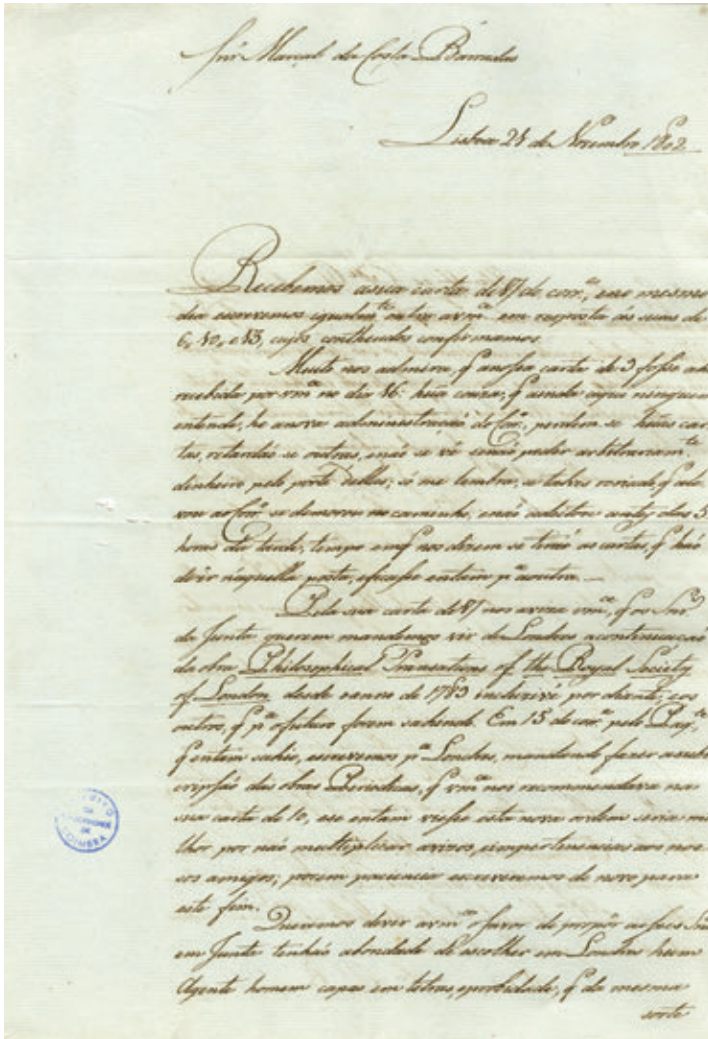 Snr. Marcal da Costa
Lisboa 24 de Novembro 1802
Recebemos a sua carta de 17 do corr.e, e no mesmo
dia escrevemos igualm.te outra a vm.ce em resposta ás suas de
6, 10, e 13, cujos contheudos confirmamos
Muito nos admira, q a nossa carta de 3 fosse
recebida por vm.ce no dia 16: huã couza, q ainda aqui ninguem
entende, he a nova administração do Corr.o, perdem se huãs car
tas, retardaõ se outras, e naõ se vê senaõ pedir arbitrariam.te
dinheiro pelo porte dellas; só me lembra, se talvez o criado, q a le
vou ao Corr.o se demorou no caminho, e naõ a deitou antes das 3
horas da tarde, tempo em q nos dizem se tiraõ as cartas, q haõ
de ir naquella posta, e ficasse entam p.a a outra.
Pela sua carta de 17 nos aviza vm.ce, q os Snr.es
da Junta querem mandemos vir de Londres a continuaçaõ
da obra Philosophical Transations of the Royal Society
of London desde o anno de 1789 incluzivè por diante; e os
outros, q p.a o futuro forem sahindo. Em 15 do corr.e pelo Paq.te,
q entam sahio, escrevemos p.a Londres, mandando fazer a sub
cripsaõ das obras Periodicas, q vm.ce nos recommendava na
sua carta de 10, e se entam viesse esta nova ordem seria me
lhor por naõ multiplicar avizos, e impertenencias aos nos
sos amigos; porem paciencia escreveremos de novo para
este fim.
Queremos dever a vm.ce o favor de propôr
em Junta tenhaõ a bondade de escolher em Londres hum
Agente homem capas em letras, e probidade, q da mesma
sorte
COIMBRA